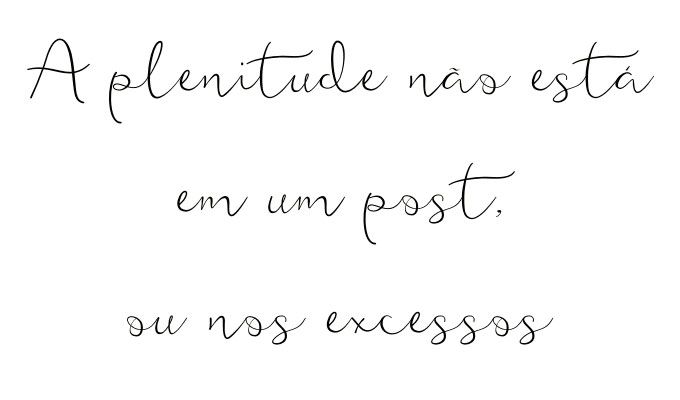 A plenitude não está
em um post,
ou nos excessos